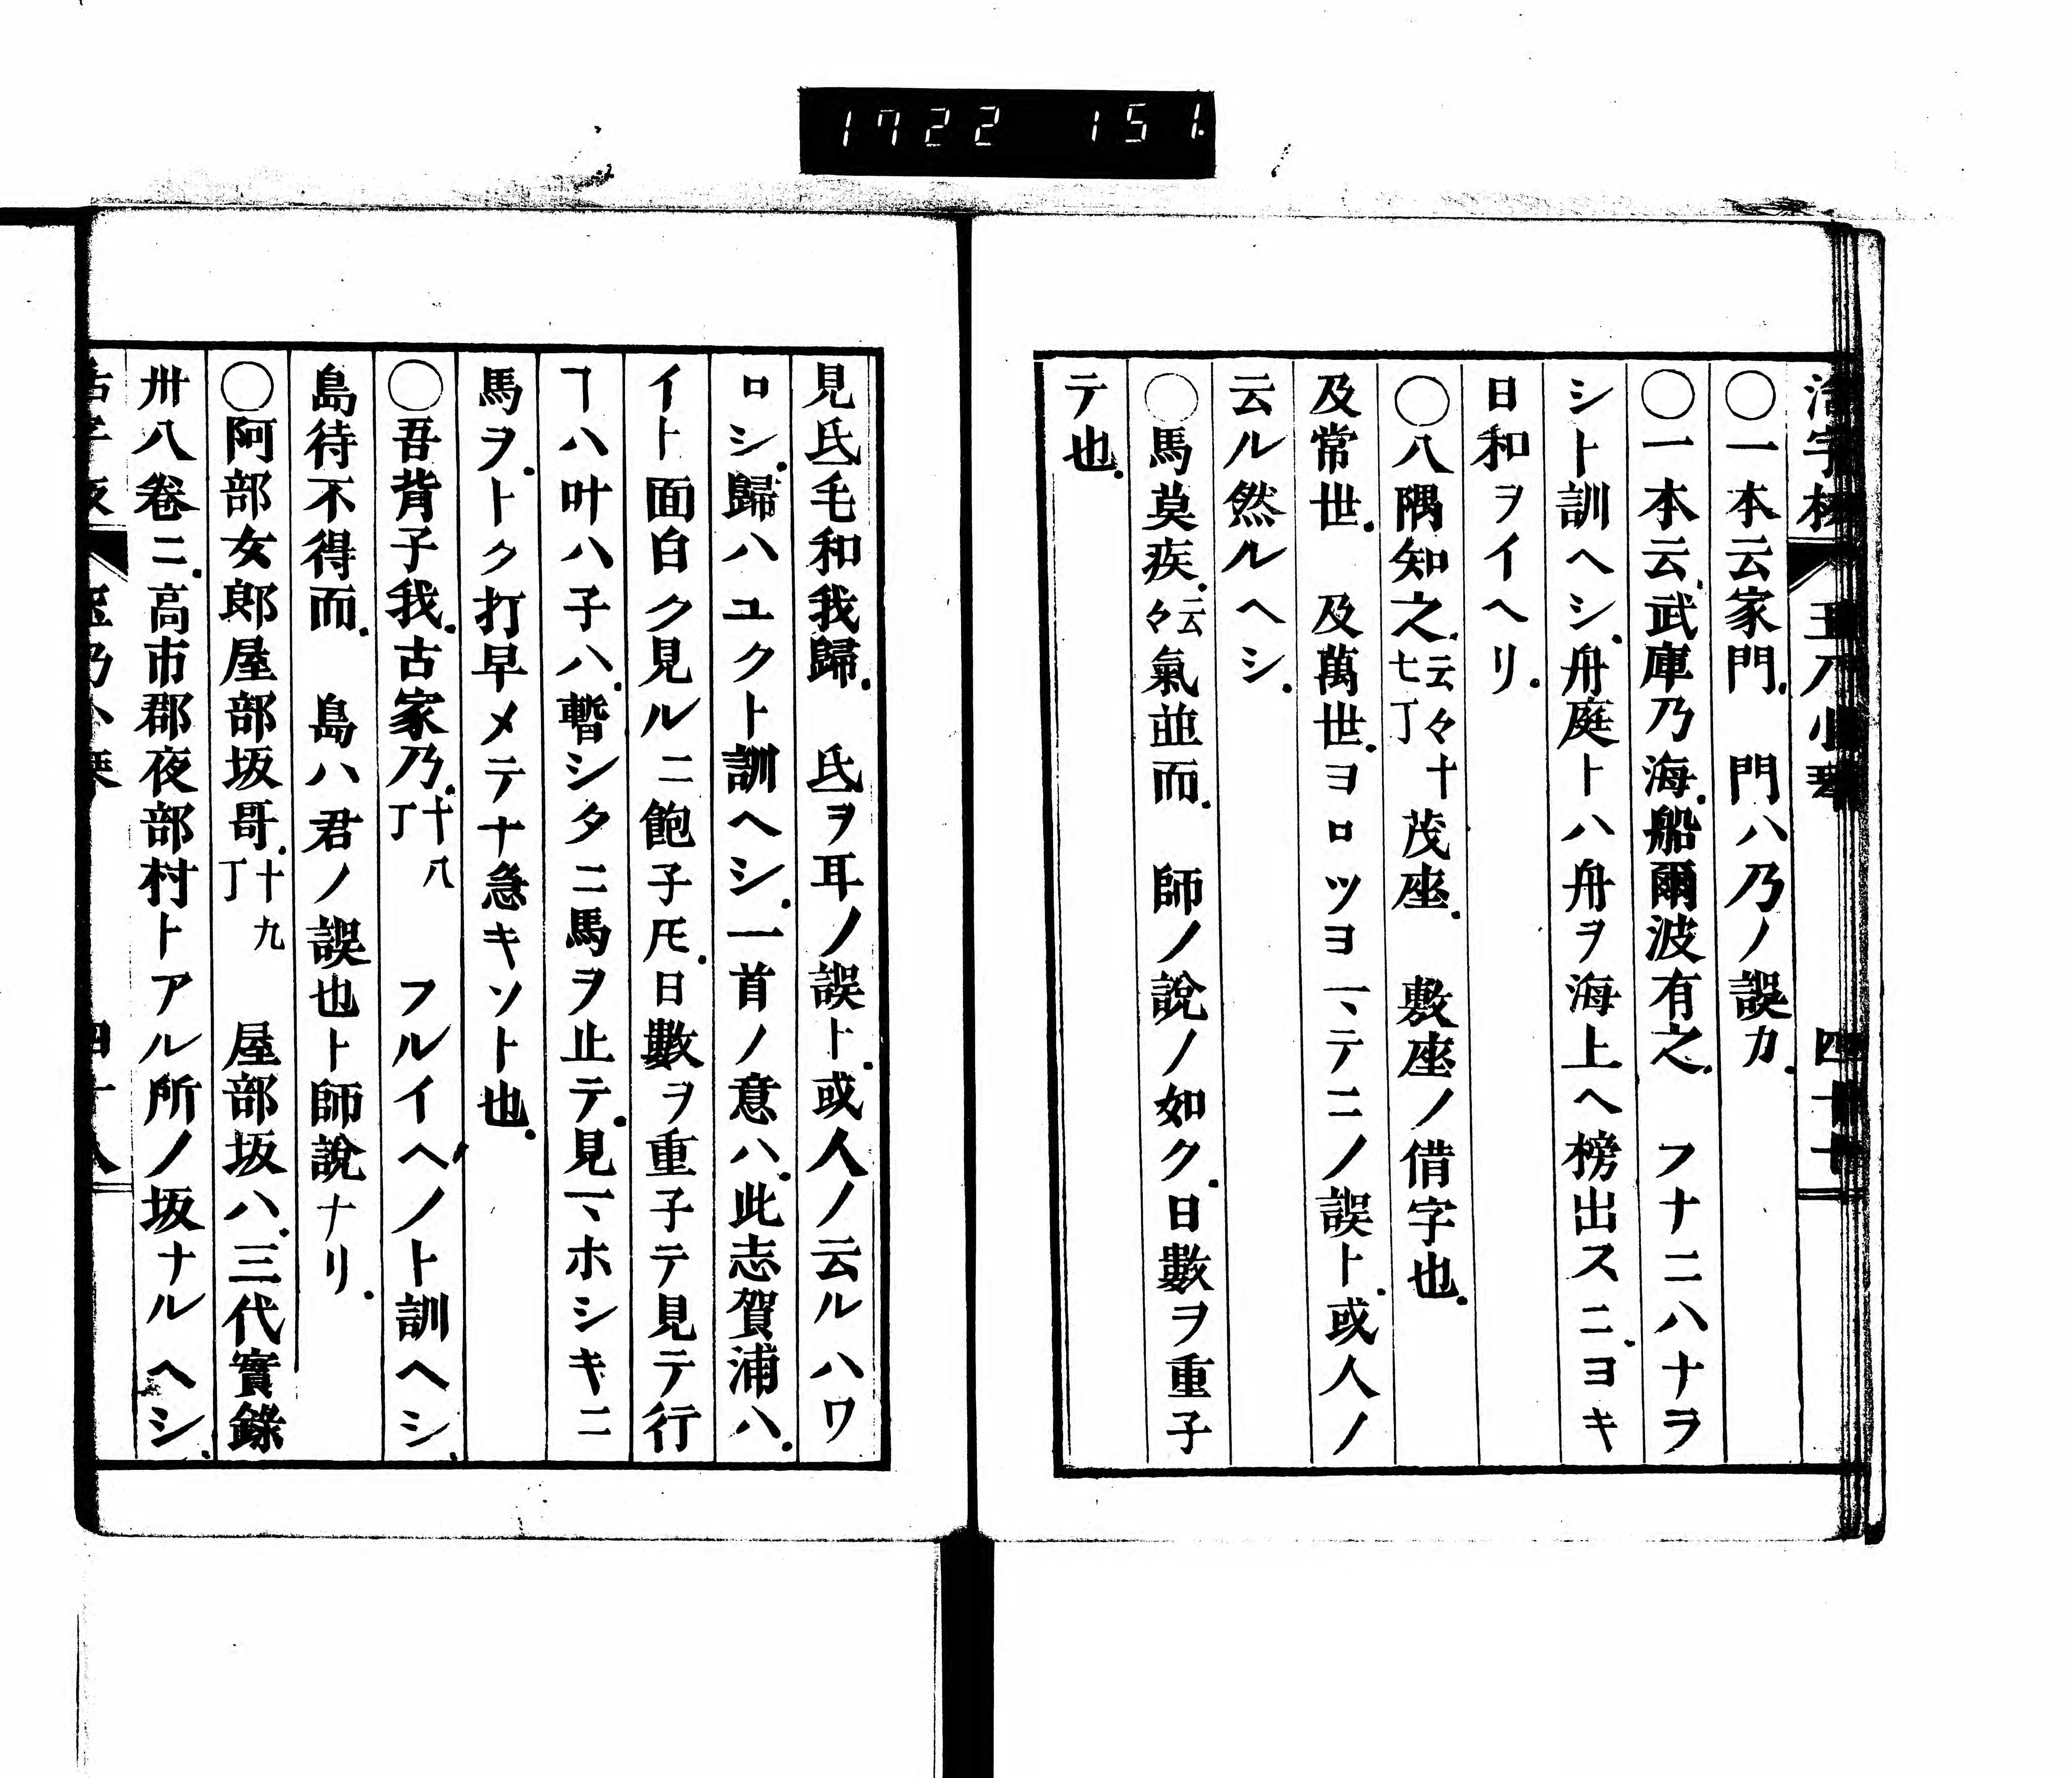 1722 151.
活字板 玉乃小琴 四十七
〇一本云家門. 門ハ乃ノ誤カ.
〇一本云.武庫乃海.船爾波有之. フナニハナラ
シト訓ヘシ.舟庭トハ舟ヲ海上ヘ榜出スニ.ヨキ
日和ヲイヘリ.
〇八隅知之.云々十七丁 茂座. 敷座ノ借字也.
及常世. 及萬世.ヨロツヨヿテニノ誤ト.或人ノ
云ル然ルヘシ.
〇馬莫疾.云々氣並而. 師ノ說ノ如ク.日數ヲ重子
テ也.
見氐毛和我歸. 氐ヲ耳ノ誤ト.或人ノ云ルハワ
ロシ.歸ハユクト訓ヘシ.一首ノ意ハ.此志賀浦ハ.
イト面白ク見ルニ飽子𪜈.日數ヲ重子テ見テ行
ヿハ叶ハ子ハ.暫シタニ馬ヲ止テ.見マホシキニ
馬ヲ.トク打早メテナ急キソト也.
〇吾背子我.古家乃.十八丁 フルイヘノト訓ヘシ.
島待不得而. 島ハ君ノ誤也ト師說ナリ.
〇阿部女郞屋部坂哥.十九丁 屋部坂ハ.三代實錄
卅八卷ニ.高市郡夜部村トアル所ノ坂ナルヘシ.